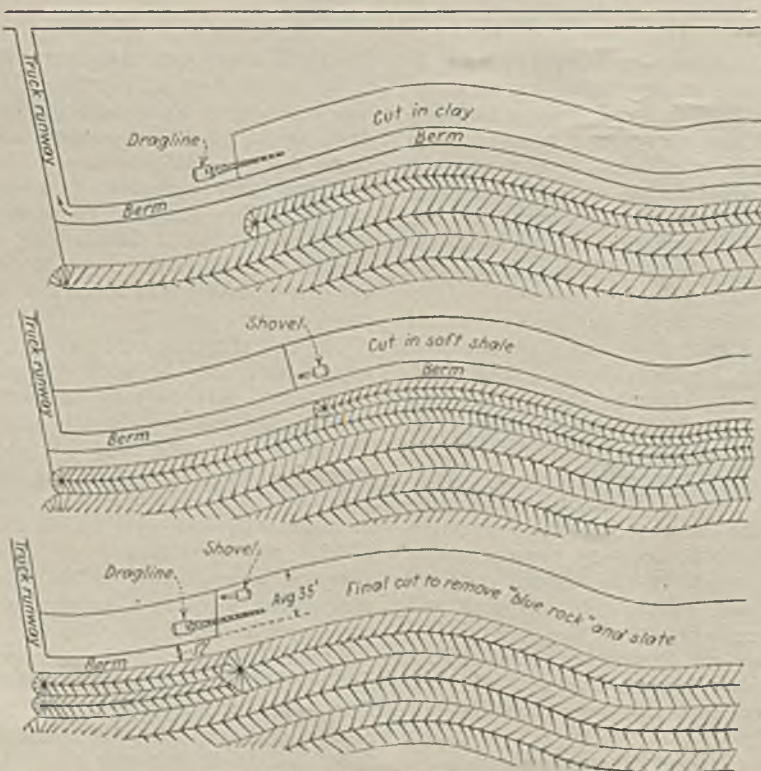 Truck runway
Cut in clay
Dragline
Berm
Berm
Truck runway
Shovel
Cut in soft shale
Berm
Berm
Truck runway
Shovel
Dragline
Avg 35'
Final cut to remove "blue rock" and slate
12'
Berm